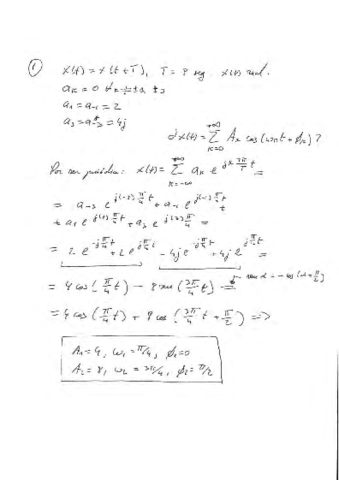 ① x(t) = x(t+T), T = 8 seg. x(t) real.
aₖ = 0 ∀k ≠ ±1, ±3
a₁ = a₋₁ = 2
a₃ = a*₋₃ = 4j
¿x(t) = Σ_{k=0}^{+∞} Aₖ cos(ωₖt + φₖ)?
Por ser periódica: x(t) = Σ_{k=-∞}^{+∞} aₖ e^{jk 2π/T t} =
= a₋₃ e^{j(-3) π/4 t} + a₋₁ e^{j(-1) π/4 t} +
+ a₁ e^{j(1) π/4 t} + a₃ e^{j(3) π/4 t} =
= 2 e^{-j π/4 t} + 2 e^{j π/4 t} - 4j e^{-j 3π/4 t} + 4j e^{j 3π/4 t} =
= 4 cos(π/4 t) - 8 sen(3π/4 t) = sen α = -cos(α + π/2)
= 4 cos(π/4 t) + 8 cos(3π/4 t + π/2) =>
A₁ = 4, ω₁ = π/4, φ₁ = 0
A₂ = 8, ω₂ = 3π/4, φ₂ = π/2